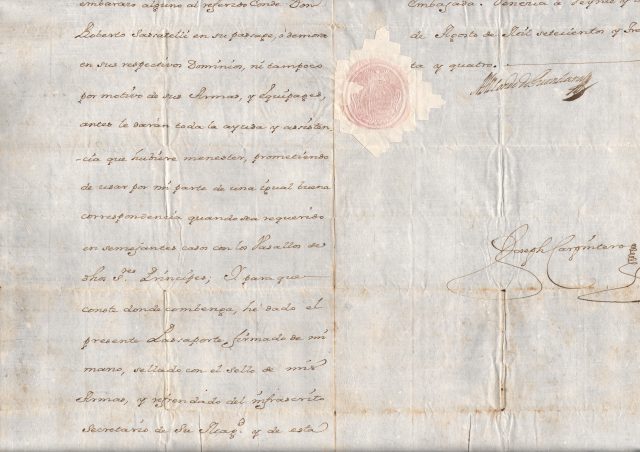 embarazo alguno al referido Conde Don
Roberto Sarratelli en su passage, ó demora
en sus respectivos Dominios, ni tampoco
por motivo de sus Armas, y equipages,
antes le darán toda la ayuda y assisten
-cia que hubiere menester, prometiendo
de usar por mi parte de una igual buena
correspondencia quando sea requerido
en semejantes casos con los Vasallos de
dhos S.res Principes; Y para que
conste donde combenga, hé dado el
presente Passaporte, firmado de mi
mano, sellado con el sello de mis
Armas, y refrendado del infrascrito
Secretario de Su Mag.d y de esta
Embajada. Venecia à veynte y
de Agosto de Mil setecientos y tre
ta y quatro.
Joseph Carpintero